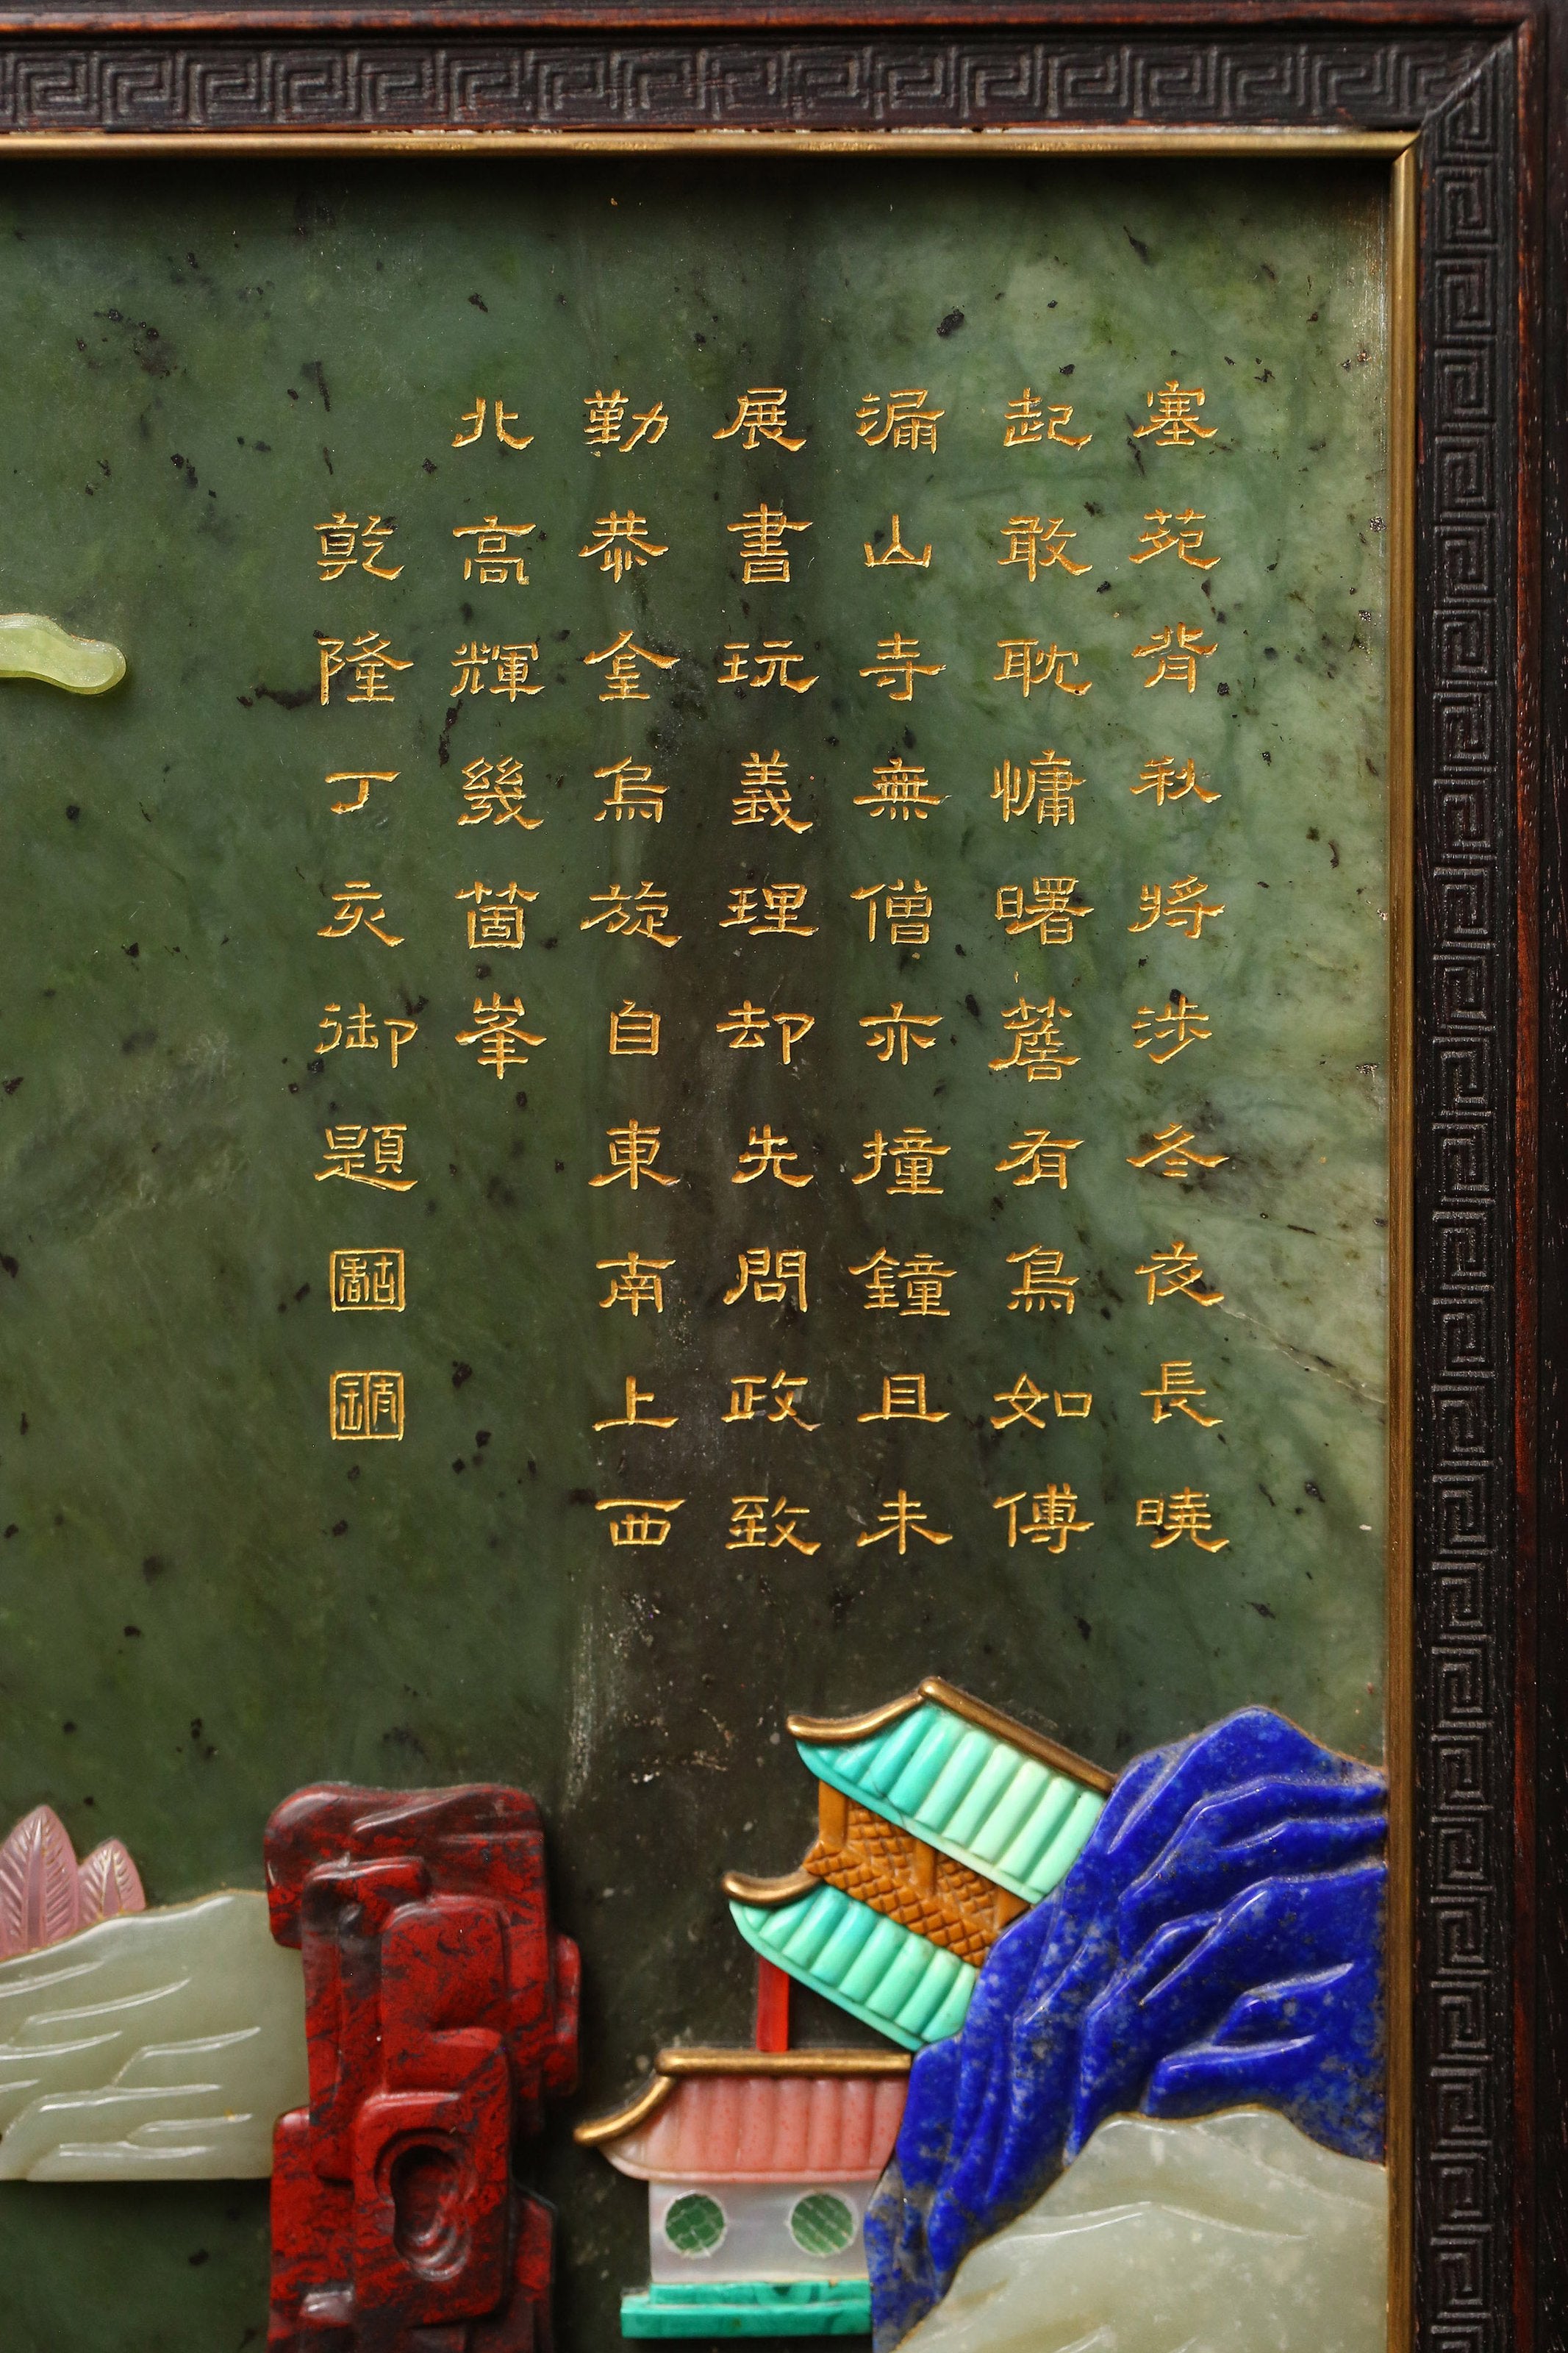 塞苑背秋將涉冬夜長曉
起敢耽慵曙簷有鳥如傅
漏山寺無僧亦撞鐘且未
展書玩義理却先問政致
勤恭金烏旋自東南上西
北高輝幾箇峯
乾隆丁亥御題